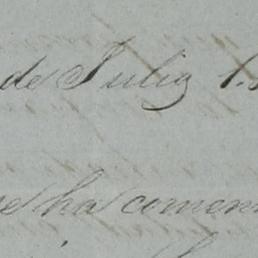 de Julio 1.
se ha comen